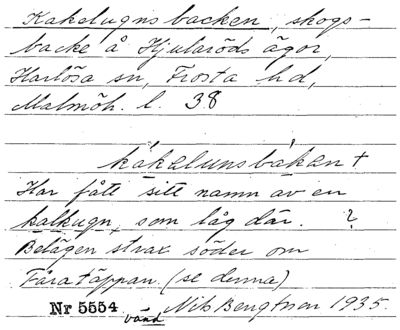 Kakelugnsbacken, skogs-
backe å Hjularöds ägor,
Harlösa sn, Frosta hd,
Malmöh. l. 38
kákelunsbákan +
Har fått sitt namn av en
kalkugn, som låg där. ?
Belägen strax söder om
Fåratäppan. (se denna)
Nr 5554 vänd Nils Bengtsson 1935.